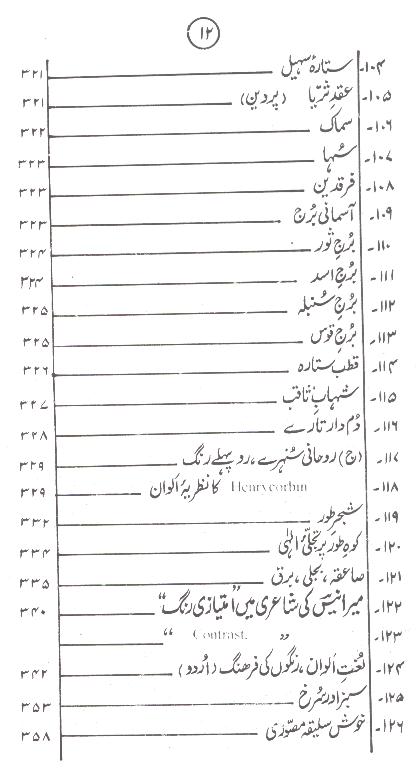 ۱۲
۱۰۴۔ ستارۂ سہیل ۳۲۱
۱۰۵۔ عقدِ ثریّا (پردین) ۳۲۱
۱۰۶۔ سماک ۳۲۲
۱۰۷۔ سُہا ۳۲۳
۱۰۸۔ فرقدین ۳۲۳
۱۰۹۔ آسمانی بُرج ۳۲۳
۱۱۰۔ بُرجِ ثور ۳۲۴
۱۱۱۔ بُرجِ اسد ۳۲۴
۱۱۲۔ بُرجِ سُنبلہ ۳۲۵
۱۱۳۔ بُرجِ قوس ۳۲۵
۱۱۴۔ قطب ستارہ ۳۲۶
۱۱۵۔ شہابِ ثاقب ۳۲۷
۱۱۶۔ دُم دار تارے ۳۲۸
۱۱۷۔ (ج) روحانی سُنہرے، روپہلے رنگ ۳۲۹
۱۱۸۔ Henrycorbin کا نظریۂ اَلوان ۳۲۹
۱۱۹۔ شجرِ طور ۳۳۲
۱۲۰۔ کوہِ طور پر تجلّیٔ الٰہی ۳۳۴
۱۲۱۔ صاعقہ، بجلی، برق ۳۳۵
۱۲۲۔ میر انیسؔ کی شاعری میں "امتیازی رنگ" ۳۴۰
۱۲۳۔ " Contrast. "
۱۲۴۔ لُغتِ اَلوان، رنگوں کی فرہنگ (اُردو) ۳۴۲
۱۲۵۔ سبز اور سُرخ ۳۵۳
۱۲۶۔ خوش سلیقہ مصوّری ۳۵۸